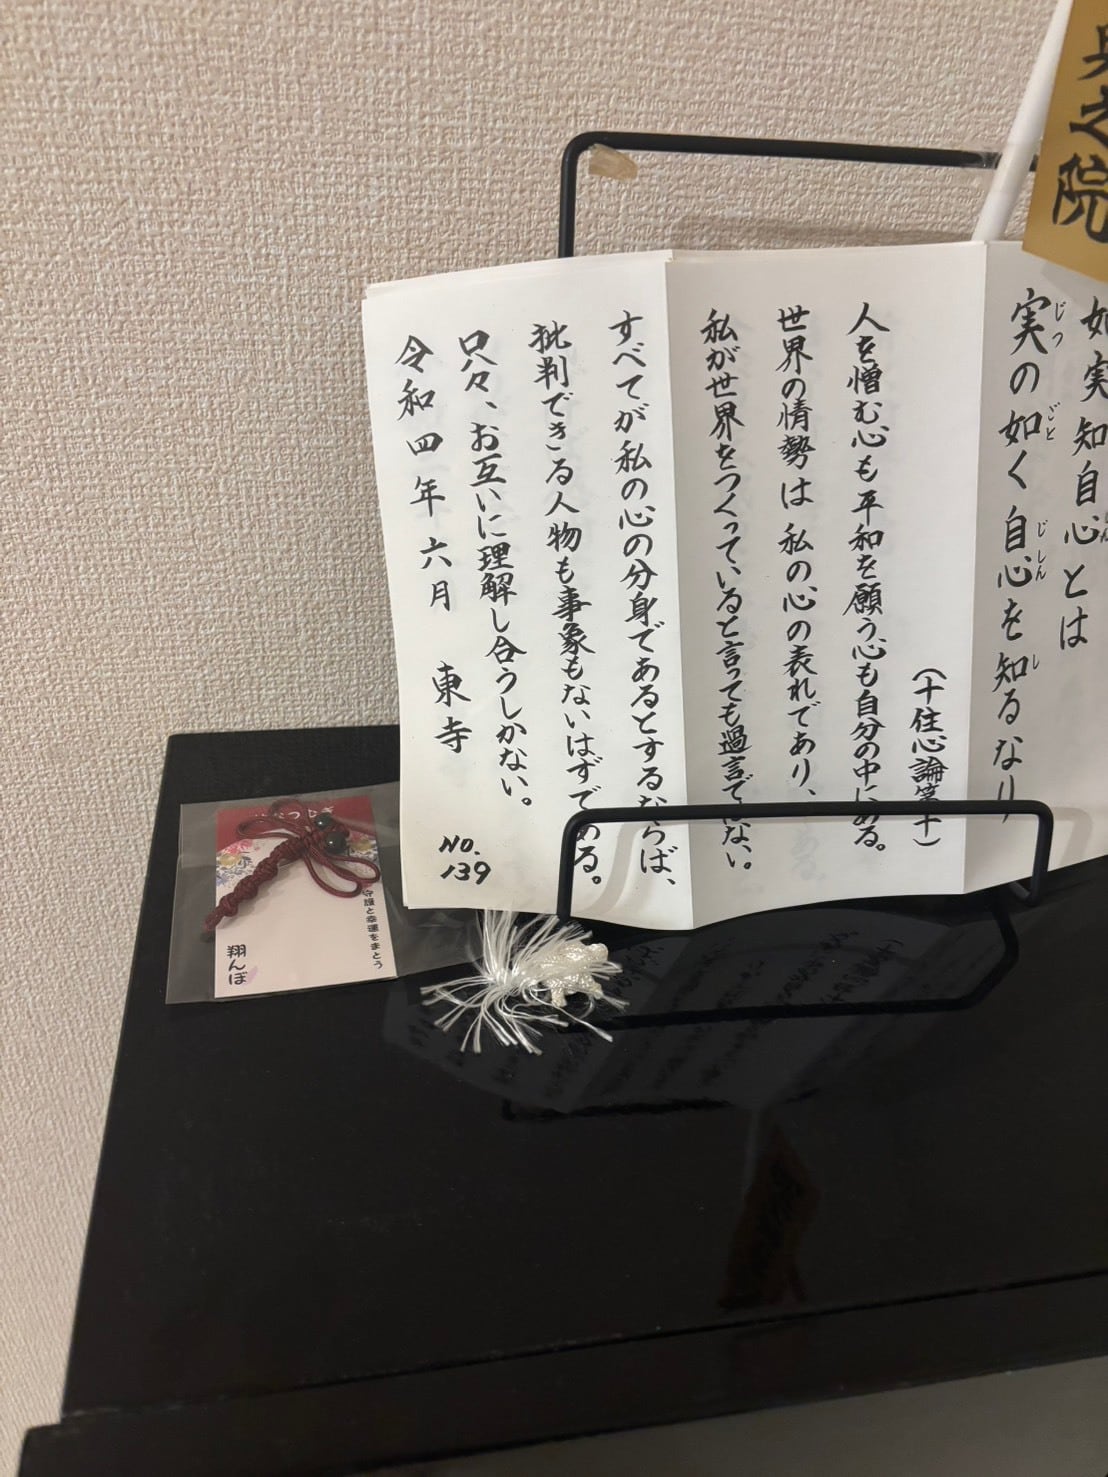 奥之院
如実知自心とは
実の如く自心を知るなり
じつ ごと じしん し
(十住心論第十)
人を憎む心も平和を願う心も自分の中にある。
世界の情勢は私の心の表れであり、
私が世界をつくっていると言っても過言でない。
すべてが私の心の分身であるとするならば、
批判できる人物も事象もないはずである。
只々、お互いに理解し合うしかない。
令和四年六月 東寺
NO.
139
守護と幸運をまとう
翔んぼ